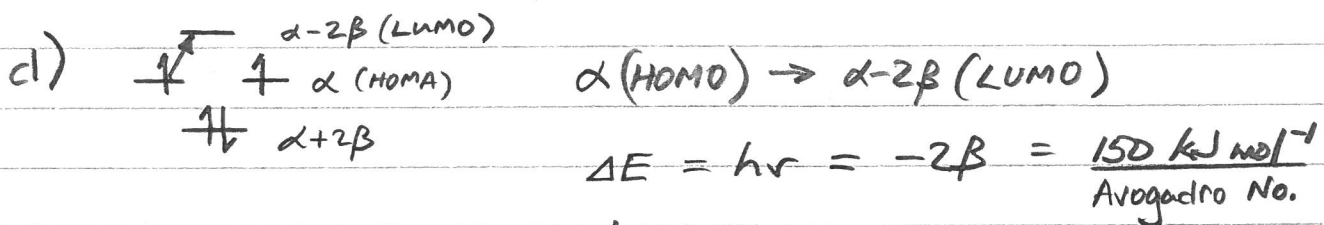 d) α-2β (LUMO)
α (HOMA) α (HOMO) → α-2β (LUMO)
α+2β
ΔE = hν = -2β = 150 kJ mol⁻¹
Avogadro No.